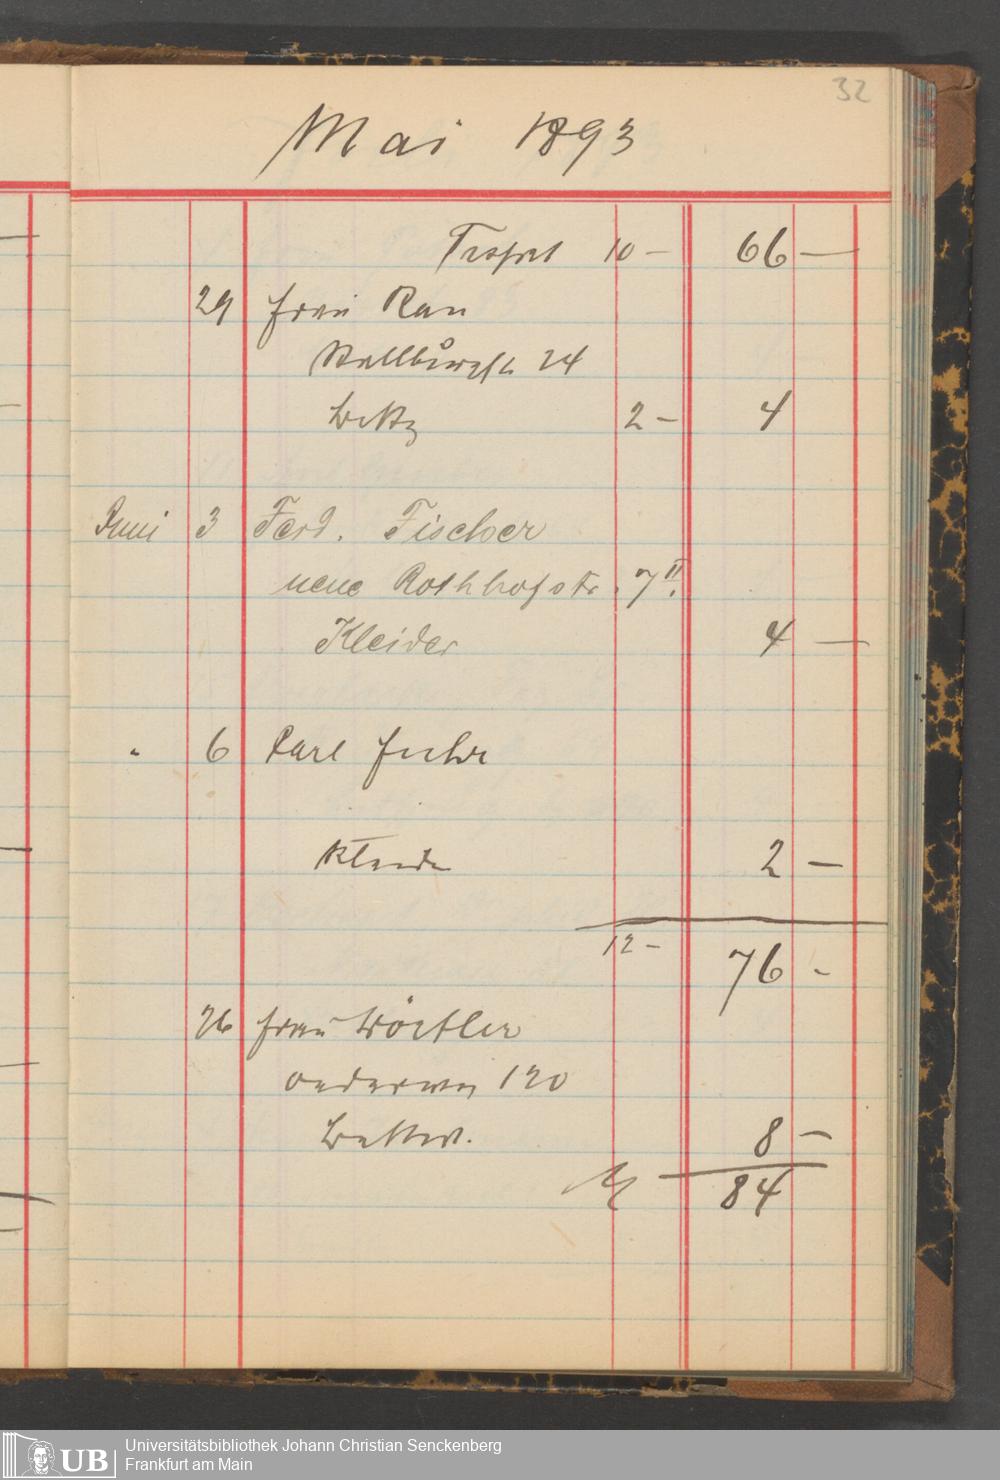 32
Mai 1893
Trsprt 10 — 66 —
29 Frau Rau
Stallburgstr 24
2 — 4
Juni 3 Ferd. Fischer
neue Rothhofstr. 7 II.
Kleider 4 —
" 6 Carl Fuhr
Kleider 2 —
12 — 76 -
26 Frau Wörtler
Oederweg 120
8 —
M 84
UB
Universitätsbibliothek Johann Christian Senckenberg
Frankfurt am Main